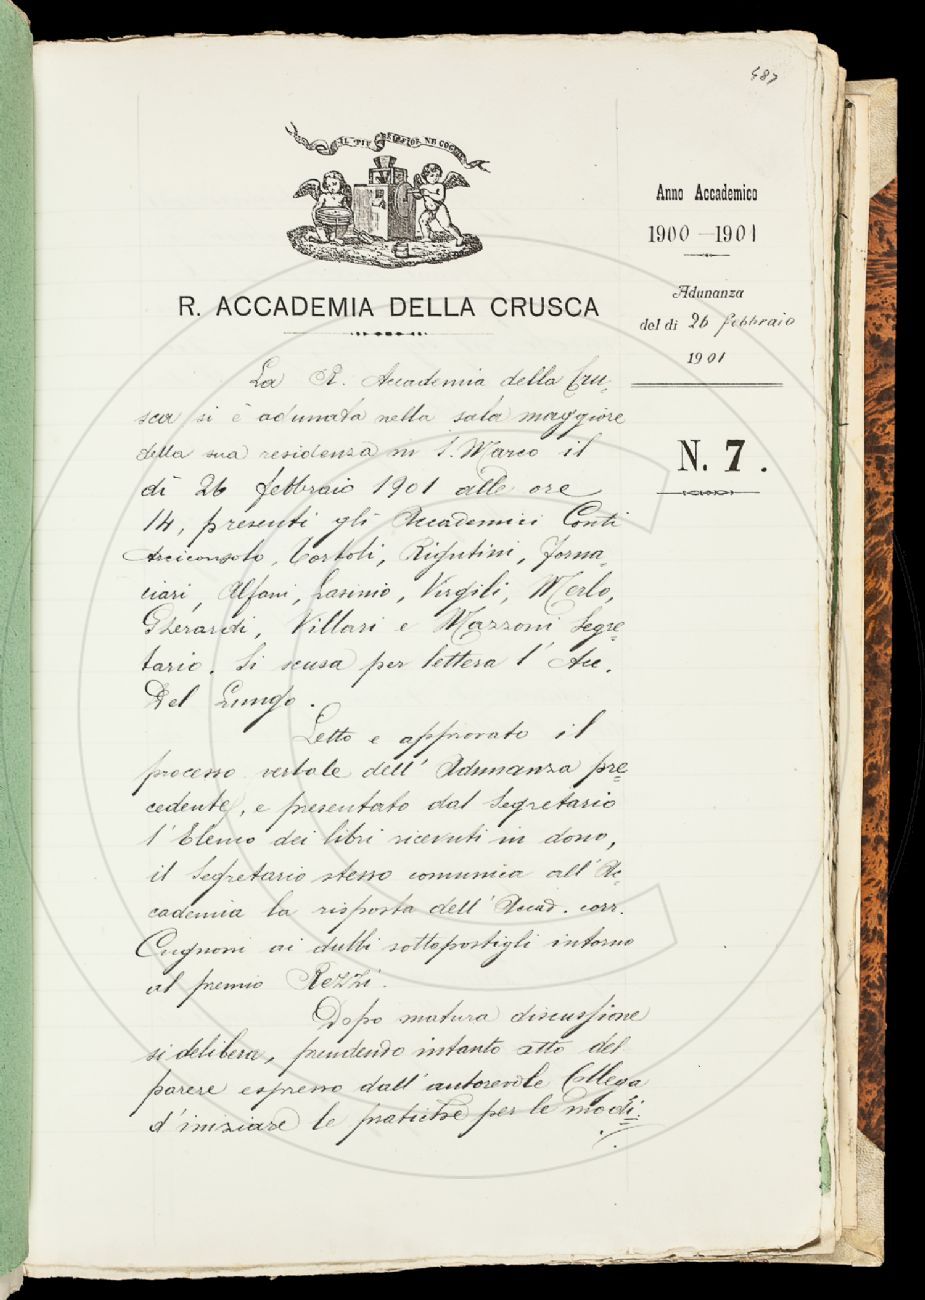 487
IL PIÙ BEL FIOR NE COGLIE
Anno Accademico
1900 - 1901
Adunanza
del dì 26 febbraio
1901
N. 7.
R. ACCADEMIA DELLA CRUSCA
La R. Accademia della Cru-
sca si è adunata nella sala maggiore
della sua residenza in S. Marco il
dì 26 febbraio 1901 alle ore
14, presenti gli Accademici Conti
Arciconsolo, Tortoli, Rigutini, Forna-
ciari, Alfani, Lasinio, Virgili, Merlo,
Gherardi, Villari e Mazzoni Segre-
tario. Si scusa per lettera l'Acc.
Del Lungo.
Letto e approvato il
processo verbale dell'Adunanza pre-
cedente, e presentato dal Segretario
l'Elenco dei libri ricevuti in dono,
il Segretario stesso comunica all'Ac-
cademia la risposta dell'Accad. corr.
Cugnoni ai dubbi sottopostigli intorno
al premio Rezzi.
Dopo matura discussione
si delibera, prendendo intanto atto del
parere espresso dall'autorevole Collega
d'iniziare le pratiche per le modi-